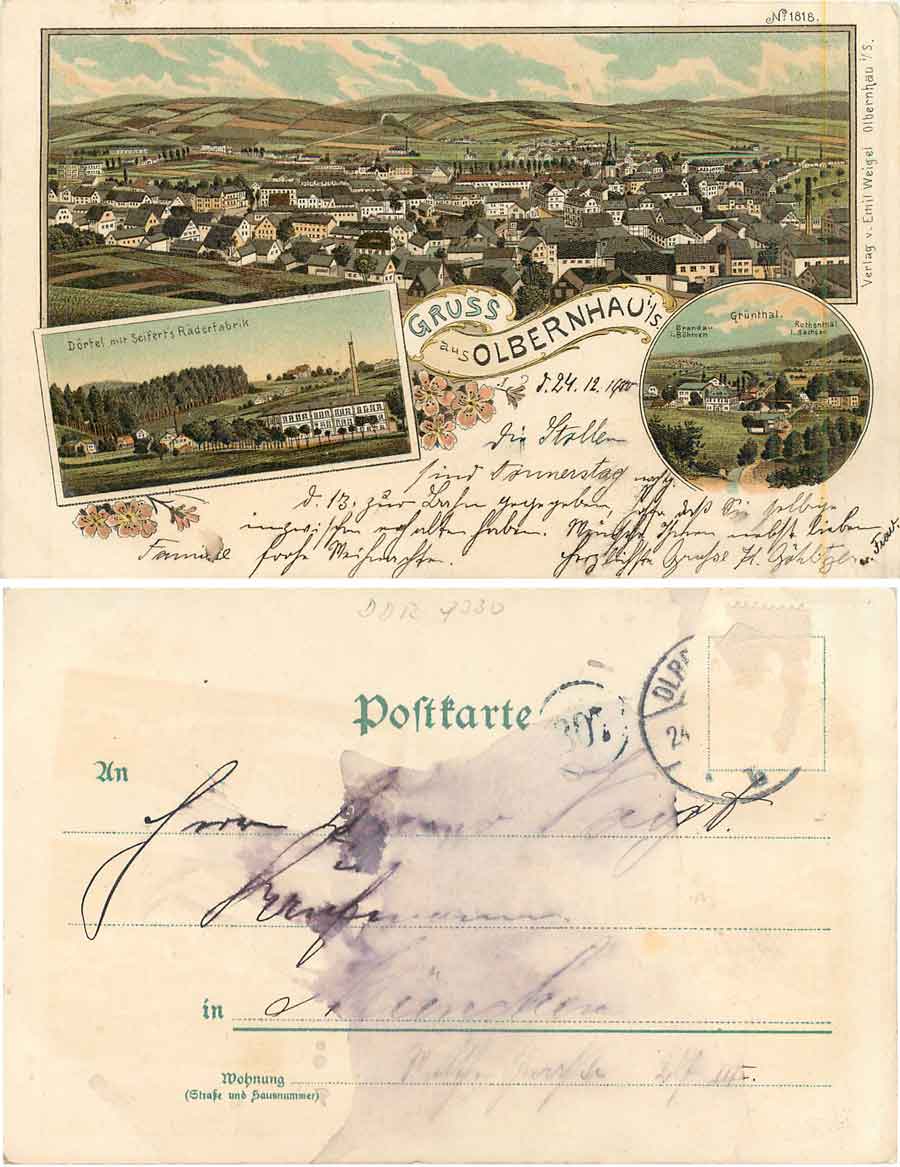 No 1818.
Verlag v. Emil Weigel Olbernhau i/S.
GRUSS
aus OLBERNHAU i/S
Dörfel mit Seifert's Räderfabrik
Grünthal.
Brandau
i. Böhmen
Rothenthal
i. Sachsen
d. 24. 12. 1900
Die Stollen
sind Donnerstag
d. 13. zur Bahn gegegeben, daß Sie selbige
inzwischen erhalten haben. Wünsche Ihnen nebst lieben
Familie frohe Weihnachten. herzlichste Grüße
u. Frau
DDR 9330
Postkarte
An
Herrn
Kaufmann
in München
Wohnung
(Straße und Hausnummer)
OLB
24